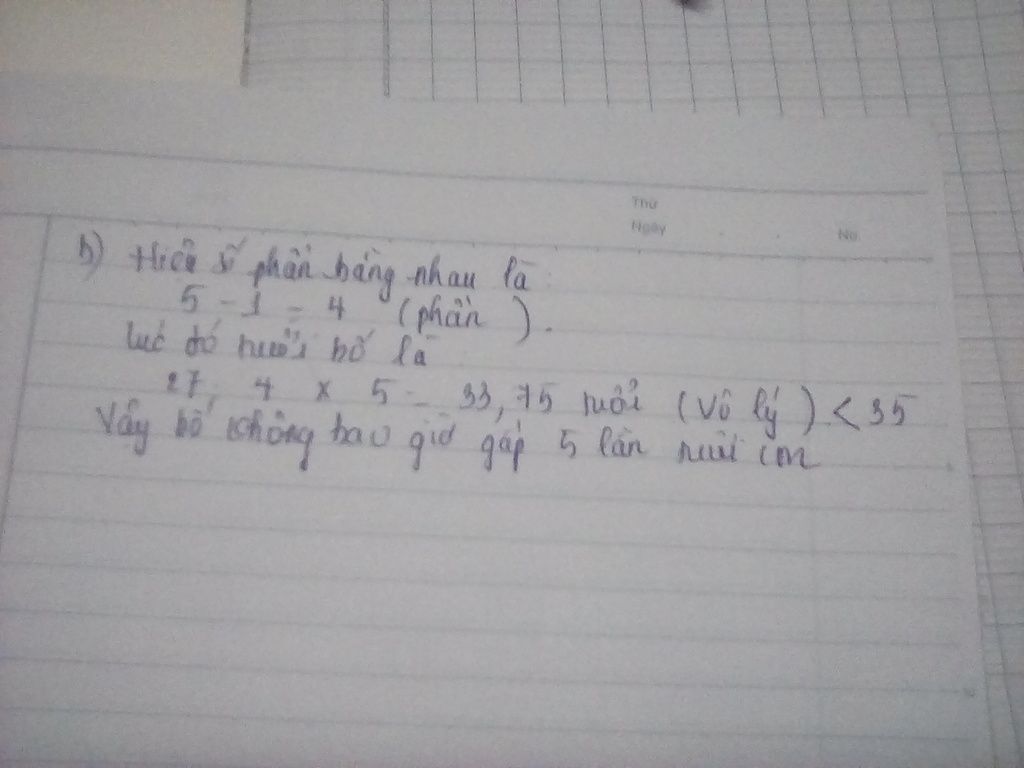 Thứ
Ngày
No.
b) Hiệu số phần bằng nhau là :
5 - 1 = 4 (phần).
lúc đó tuổi bố là
27 : 4 x 5 = 33,75 tuổi (vô lý) < 35
Vậy bố không bao giờ gấp 5 lần tuổi con